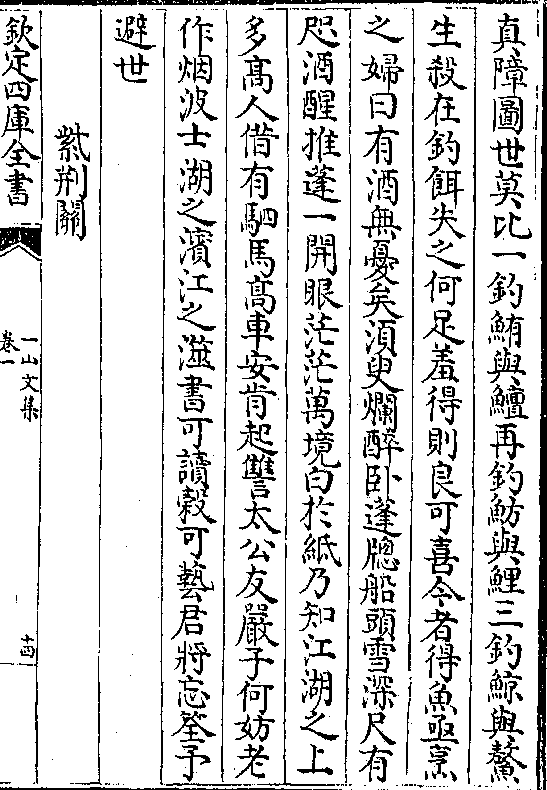 真障圖世莫比一釣鮪與鱣再釣魴與鯉三釣鯨與鰲
生殺在釣餌失之何足羞得則良可喜今者得魚亟烹
之婦曰有酒無憂矣湏臾爛醉卧蓬牎船頭雪深尺有
咫酒醒推蓬一開眼茫茫萬境白於紙乃知江湖之上
多髙人借有駟馬髙車安肯起讐太公友嚴子何妨老
作烟波士湖之濱江之澨書可讀糓可藝君將忘筌予
避世
紫荆關
欽定四庫全書
一山文集
卷一
十四